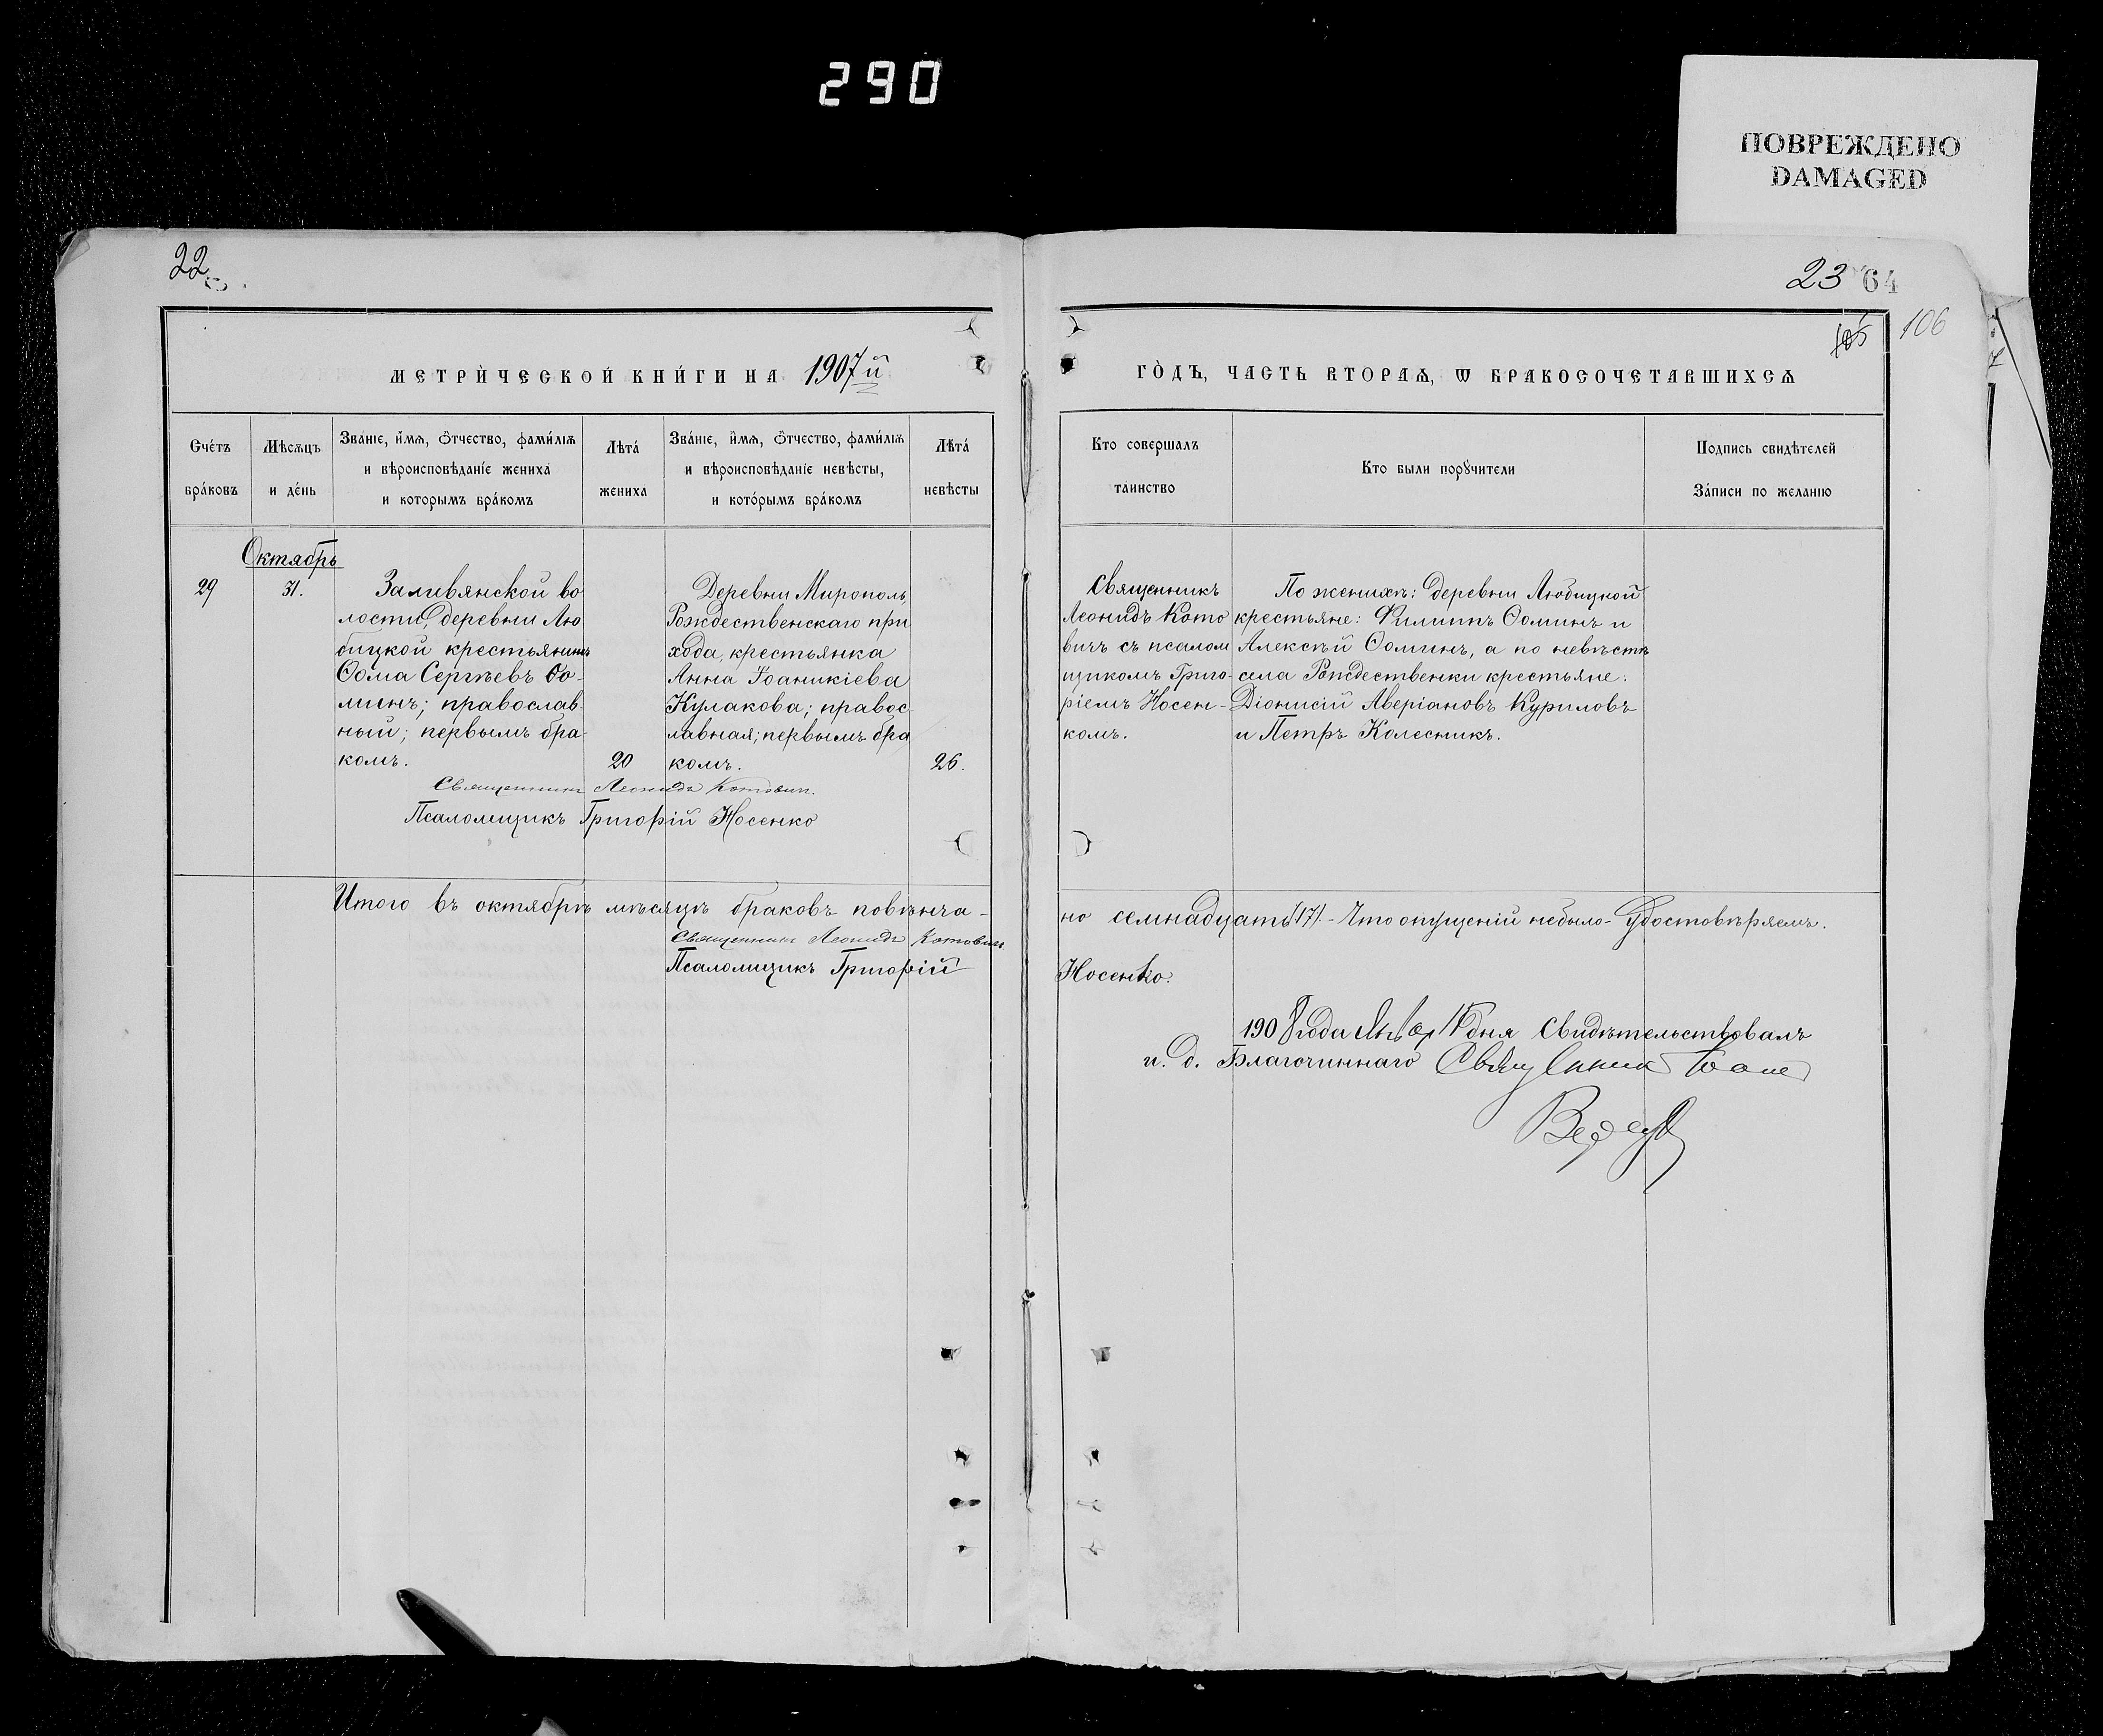 290
ПОВРЕЖДЕНО
DAMAGED
22
23 64
105 106
МЕТРИ́ЧЕСКОЙ КНИ́ГИ НА 1907й
ГО́ДЪ, ЧАСТЬ ВТОРАѦ, Ѡ БРАКОСОЧЕТАВШИХСѦ
Сче́тъ
бра́ковъ
Мѣсѧцъ
и де́нь
Зва́нїе, и́мѧ, ѻ́тчество, фами́лїѧ
и вѣроисповѣданїе жениха̀
и которымъ бра́комъ
Лѣта́
жениха
Зва́нїе, и́мѧ, ѻ́тчество, фами́лїѧ
и вѣроисповѣданїе невѣсты,
и кото́рымъ бра́комъ
Лѣта́
невѣсты
Кто совершалъ
таинство
Кто были порꙋчители
Подпись свидѣтелей
За́писи по желанїю
Октябрь
29
31.
Заливянской во
лости, деревни Лю
бицкой крестьянинъ
Ѳома Сергѣевъ Ѳо-
минъ; православ-
ный; первымъ бра-
комъ.
20
Деревни Мирополь,
Рождественскаго при
хода, крестьянка
Анна Іоаникіева
Кулакова; правос-
лавная; первымъ бра
комъ.
26.
Священникъ Леонидъ Котовичъ.
Псаломщикъ Григорій Носенко
Священникъ
Леонидъ Кото
вичъ съ псалом
щикомъ Григо-
ріемъ Носен-
комъ.
По женихѣ: деревни Любицкой
крестьяне: Филиппъ Ѳоминъ и
Алексѣй Ѳоминъ, а по невѣстѣ
села Рождественки крестьяне:
Діонисій Аверіановъ Куриловъ
и Петръ Колесникъ.
Итого въ октябрѣ мѣсяцѣ браковъ повѣнча-
но семнадцать /17/. - Что опущеній небыло - Удостовѣряемъ.
Священникъ Леонидъ Котовичъ
Псаломщикъ Григорій
Носенко.
1908 года дня Свидѣтельствовалъ
и. д. Благочиннаго Священник Іоанн